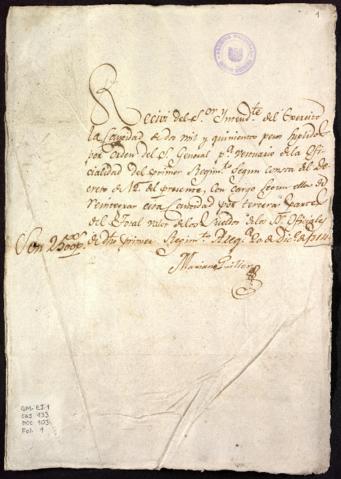 1
Recivi del S.or Yntend.te del Exercito
la Cantidad de dos mil y quinientos pesos suplidos
por orden del S.r General p.a Vestuario de la Ofi
cialidad del primer Regim.to segun consta del De
creto de 12 del presente, con cargo
Reintegrar esta Cantidad por tercera parte
del Total valor de los Sueldos de los S.s Oficiales
Son 2500 p.s de dho primer Regim.to Areq.a 20 de Dic.e de 1814
Mariano Guillen
GM-EJ.1
CAJ 133
DOC 103
Fol. 1